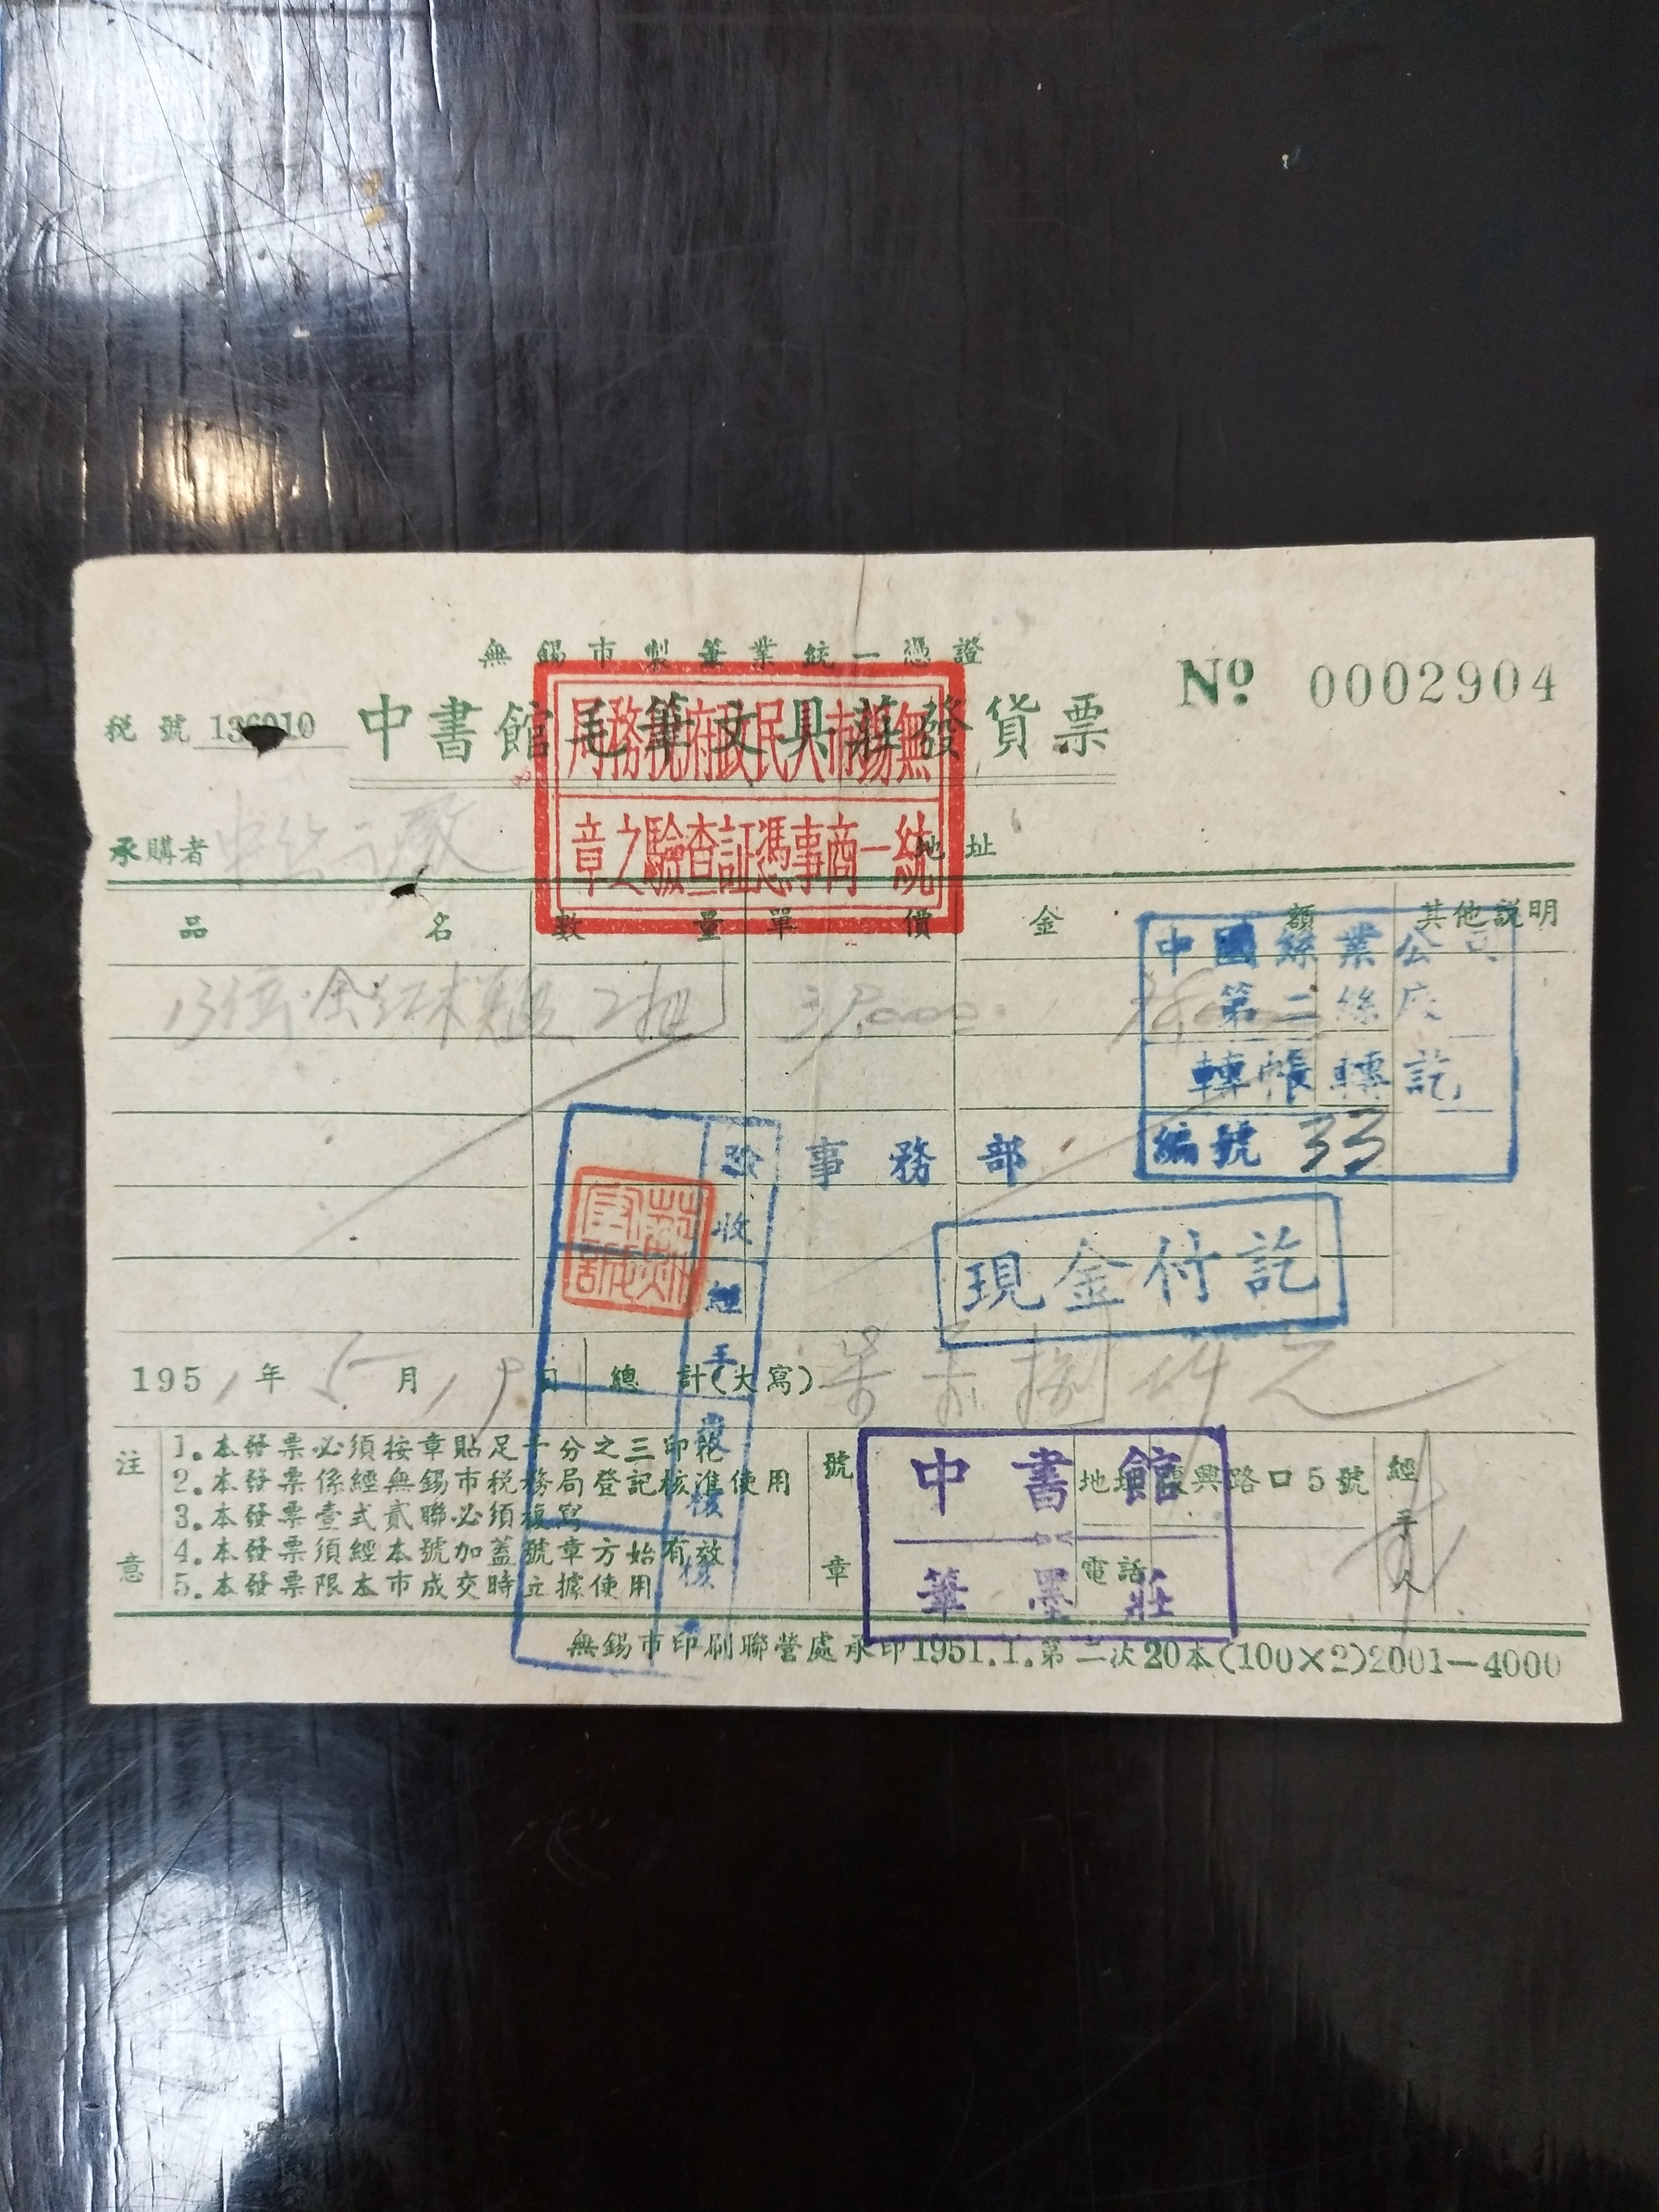 無錫市製筆業統一憑證
№ 0002904
稅號 136010
中書館毛筆文具莊發貨票
無錫市人民政府稅務局
統一商事憑証查驗之章
承購者
地址
品名 數量 單價 金額 其他説明
中國絲業公司
第二絲廠
轉帳轉訖
編號 33
事務部
現金付訖
驗收
經手
1951年5月19日 總計(大寫)
注意
1.本發票必須按章貼足千分之三印花
2.本發票係經無錫市稅務局登記核准使用
3.本發票壹式貳聯必須複寫
4.本發票須經本號加蓋號章方始有效
5.本發票限本市成交時立據使用
號章
中書館
筆墨莊
地址復興路口5號
電話
經手人
無錫市印刷聯營處承印1951.1.第二次20本(100×2)2001—4000